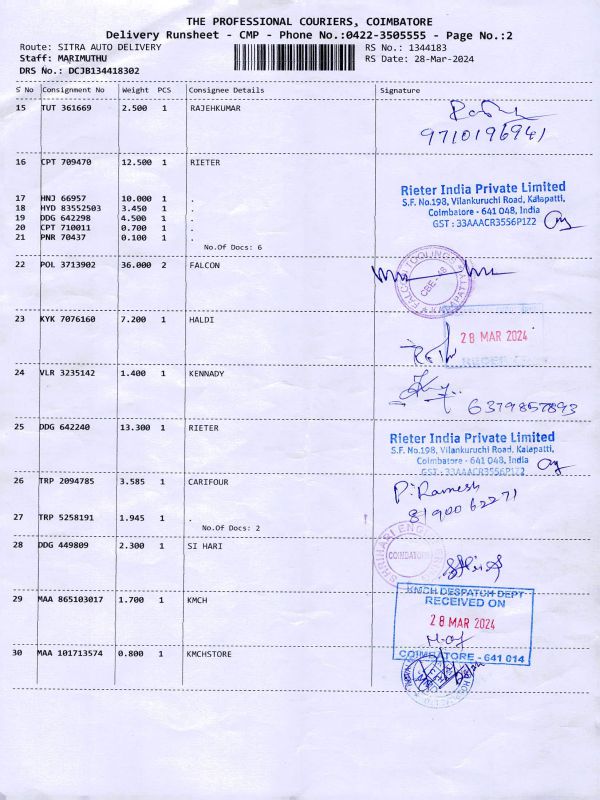 THE PROFESSIONAL COURIERS, COIMBATORE
Delivery Runsheet - CMP - Phone No.:0422-3505555 - Page No.:2
Route: SITRA AUTO DELIVERY RS No.: 1344183
Staff: MARIMUTHU RS Date: 28-Mar-2024
DRS No.: DCJB134418302
S No Consignment No Weight PCS Consignee Details Signature
15 TUT 361669 2.500 1 RAJEHKUMAR
9710196941
16 CPT 709470 12.500 1 RIETER
Rieter India Private Limited
S.F. No.198, Vilankuruchi Road, Kalapatti,
Coimbatore - 641 048, India
GST : 33AAACR3556P1Z2
17 HNJ 66957 10.000 1 .
18 HYD 83552503 3.450 1 .
19 DDG 642298 4.500 1 .
20 CPT 710011 0.700 1 .
21 PNR 70437 0.100 1 .
No.Of Docs: 6
22 POL 3713902 36.000 2 FALCON
FALCON TOOLINGS
CBE-48
KALAPATTI
23 KYK 7076160 7.200 1 HALDI
28 MAR 2024
24 VLR 3235142 1.400 1 KENNADY
6379857893
25 DDG 642240 13.300 1 RIETER
Rieter India Private Limited
S.F. No.198, Vilankuruchi Road, Kalapatti,
Coimbatore - 641 048, India
GST : 33AAACR3556P1Z2
26 TRP 2094785 3.585 1 CARIFOUR
P. Ramesh
8190062271
27 TRP 5258191 1.945 1 .
No.Of Docs: 2
28 DDG 449809 2.300 1 SI HARI
SHRIHARI ENGI
COIMBATORE
29 MAA 865103017 1.700 1 KMCH
KMCH DESPATCH DEPT
RECEIVED ON
28 MAR 2024
COIMBATORE - 641 014
30 MAA 101713574 0.800 1 KMCHSTORE